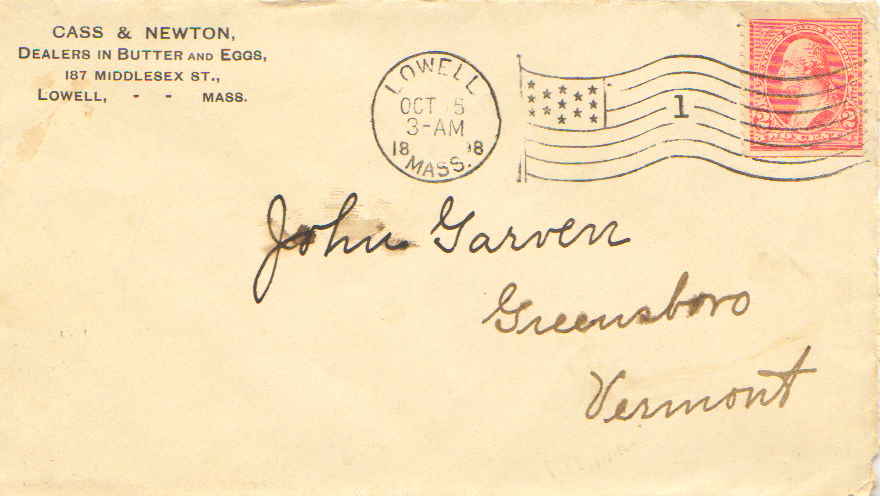 CASS & NEWTON,
DEALERS IN BUTTER AND EGGS,
187 MIDDLESEX ST.,
LOWELL, - - MASS.
LOWELL
OCT 5
3-AM
18 98
MASS.
1
2 2
TWO CENTS
John Garven
Greensboro
Vermont